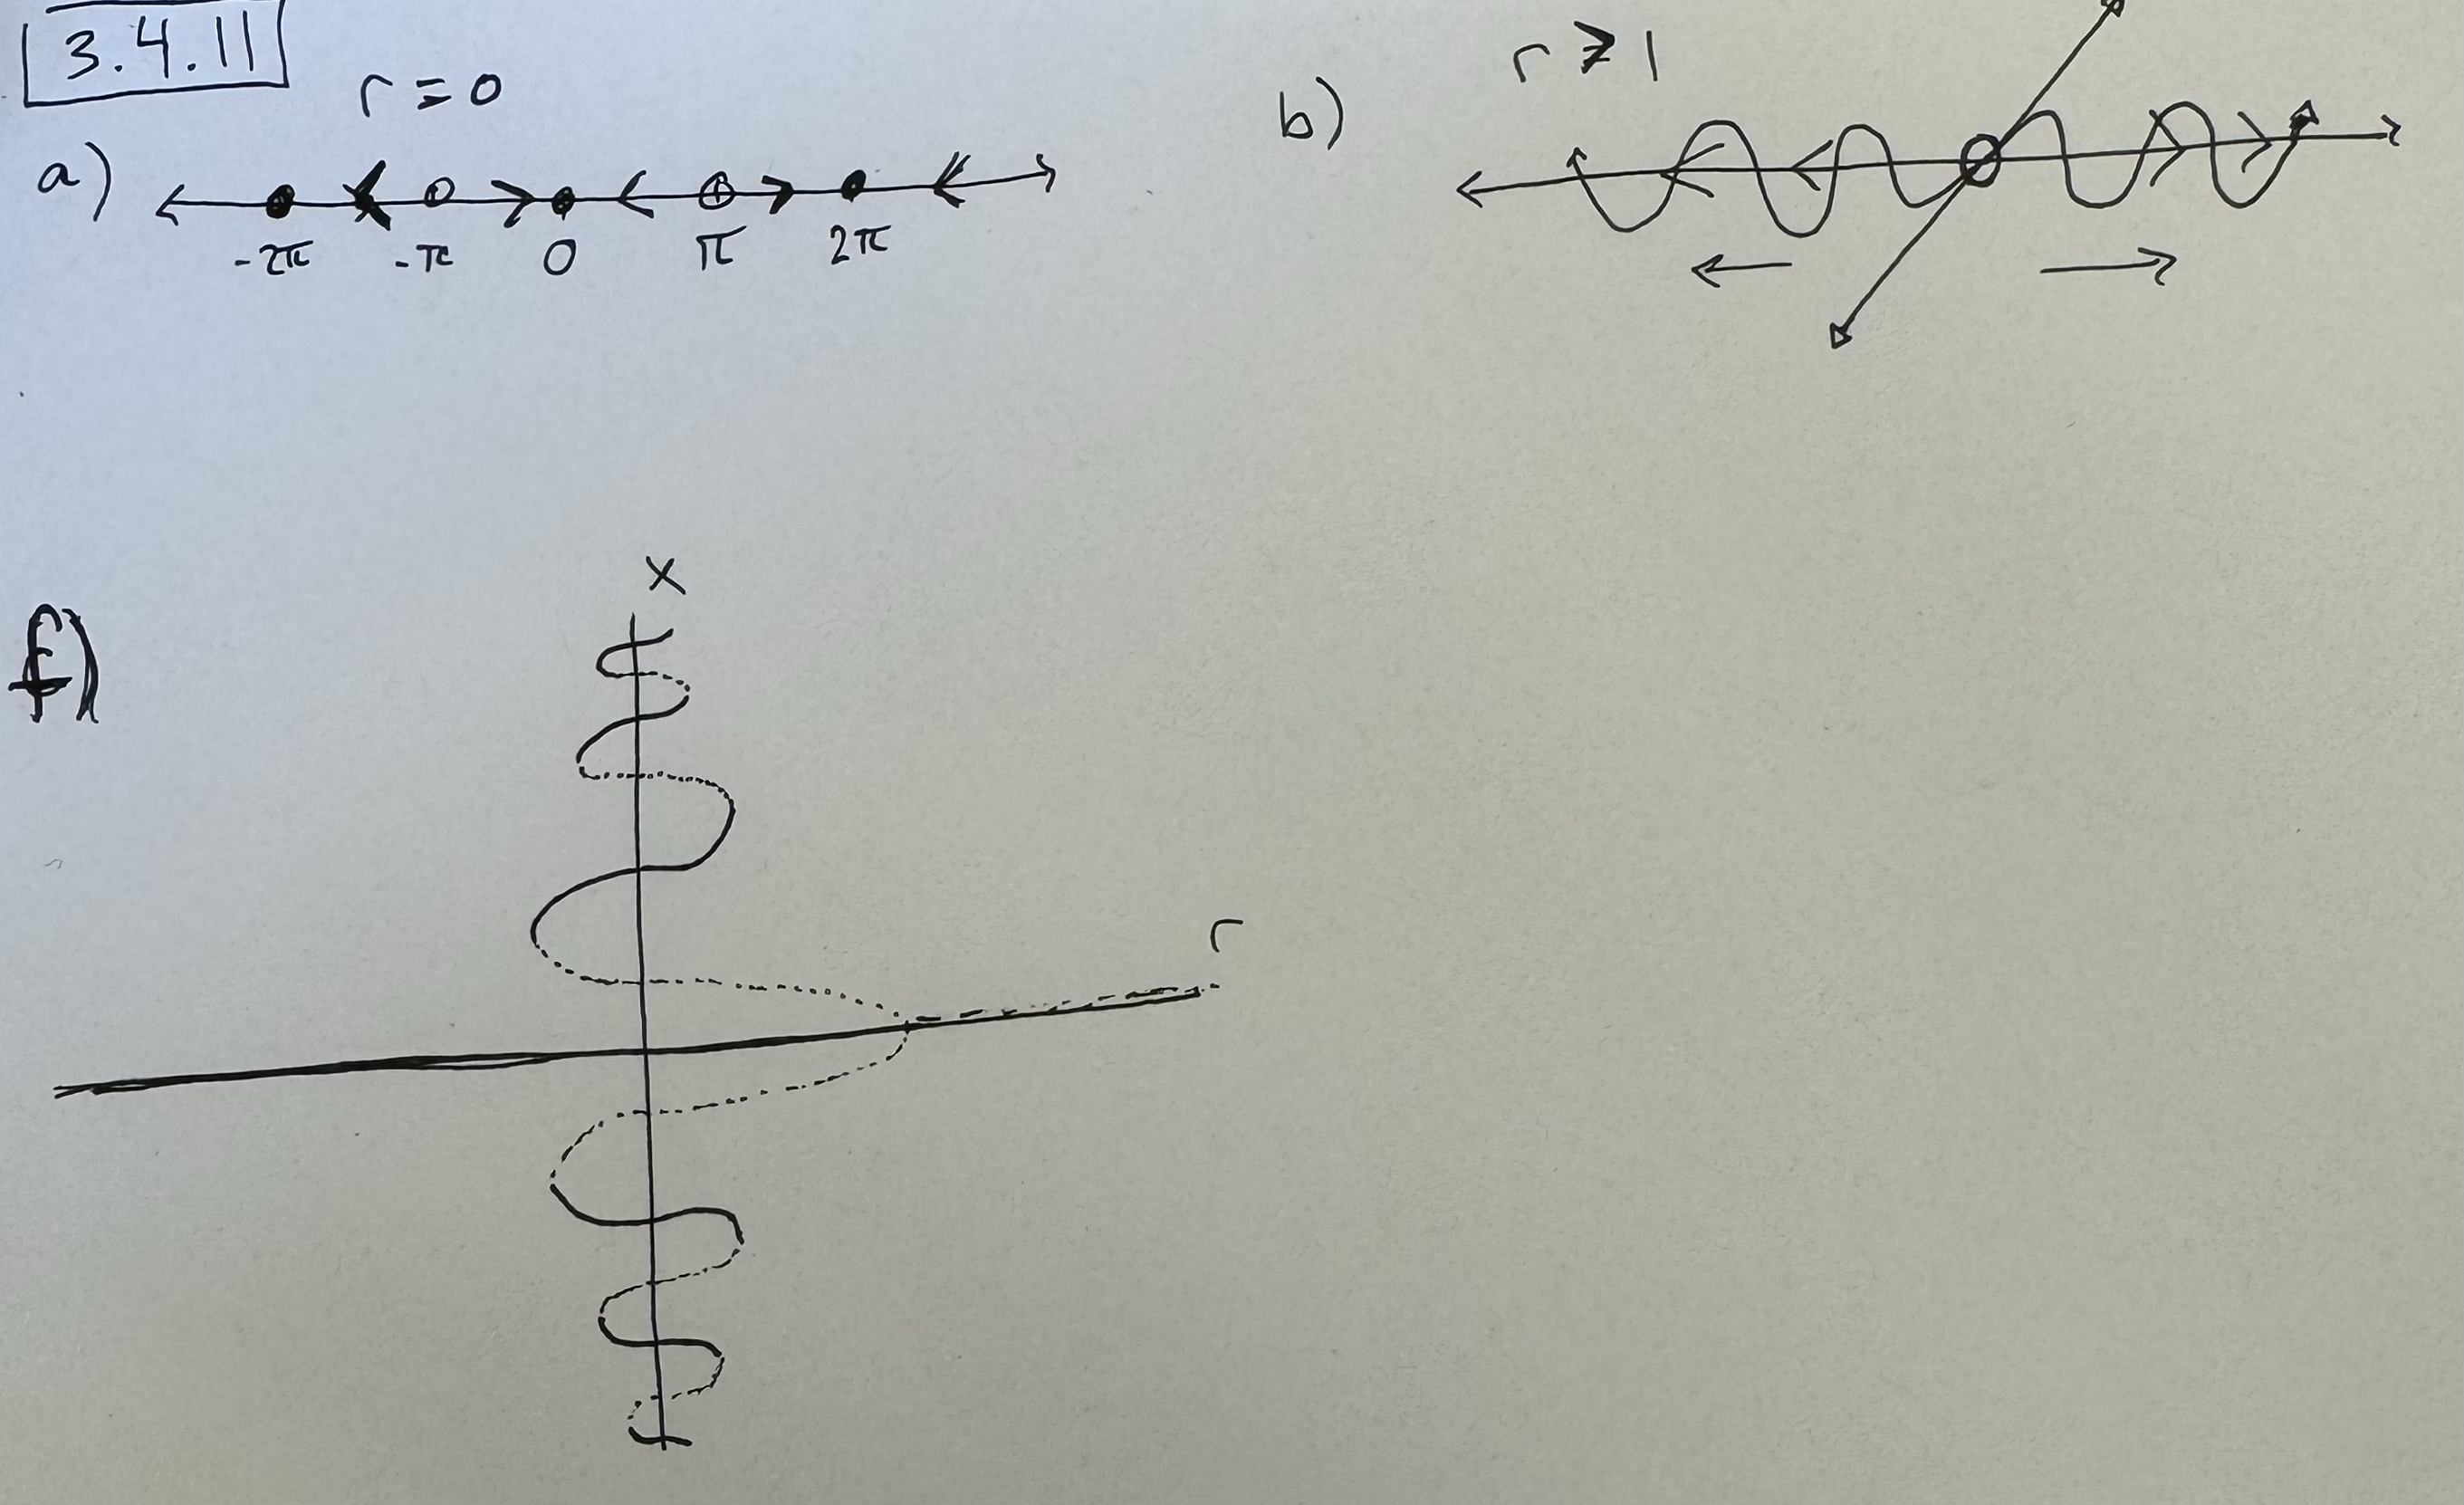 3.4.11
r = 0
a)
-2π -π 0 π 2π
b)
r > 1
f)
x
r